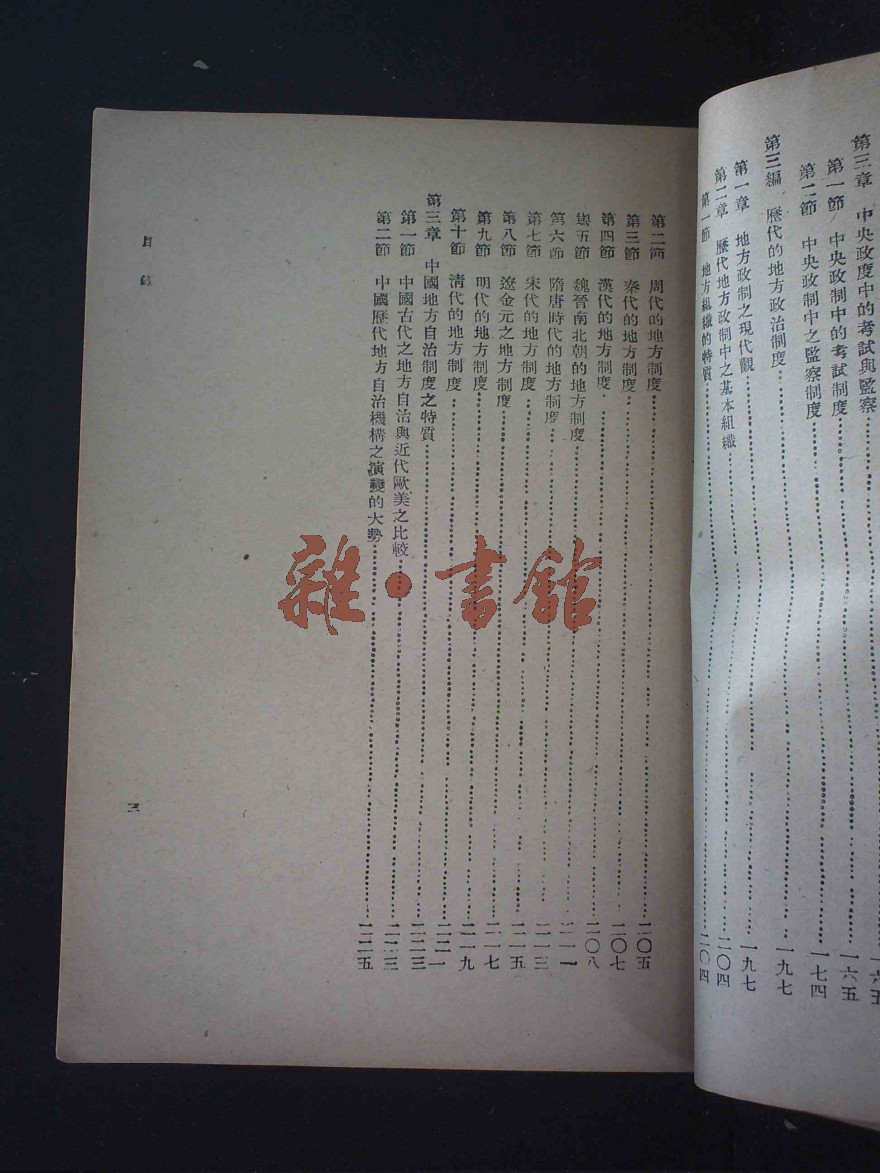 第三章　中央政度中的考試與監察……一六五
第一節　中央政制中的考試制度……一六五
第二節　中央政制中之監察制度……一七四
第三編　歷代的地方政治制度……一九七
第一章　地方政制之現代觀……一九七
第二章　歷代地方政制中之基本組織……二〇四
第一節　地方組織的特質……二〇四
第二節　周代的地方制度……二〇五
第三節　秦代的地方制度……二〇七
第四節　漢代的地方制度……二〇八
第五節　魏晉南北朝的地方制度……二一一
第六節　隋唐時代的地方制度……二一三
第七節　宋代的地方制度……二一五
第八節　遼金元之地方制度……二一七
第九節　明代的地方制度……二一九
第十節　清代的地方制度……二二一
第三章　中國地方自治制度之特質……二二三
第一節　中國古代之地方自治與近代歐美之比較……二二三
第二節　中國歷代地方自治機構之演變的大勢……二二五
目錄
三
雜·書館